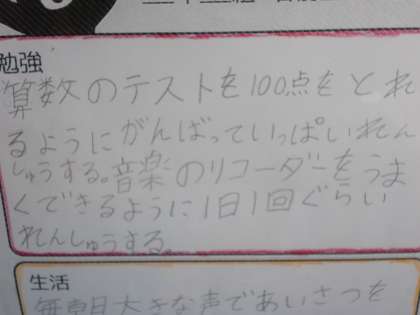 勉強
算数のテストを100点をとれ
るようにがんばっていっぱいれん
しゅうする。音楽のリコーダーをうま
くできるように1日1回ぐらい
れんしゅうする。
生活
毎朝大きな声であいさつを